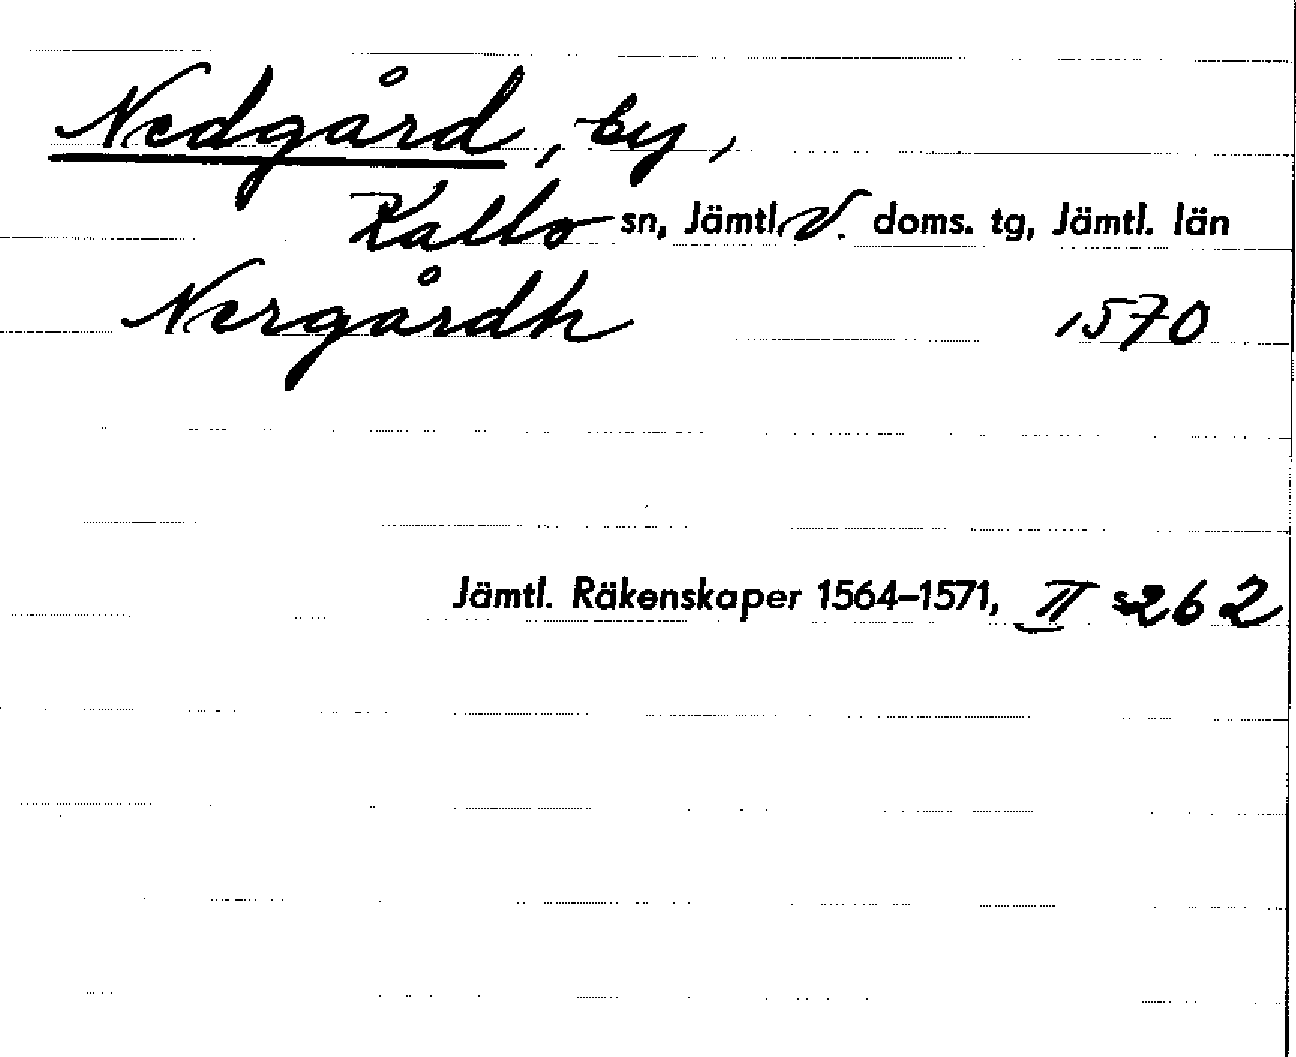 Nedgård, by,
Kallo sn, Jämtl. V. doms. tg, Jämtl. län
Nergårdh 1570
Jämtl. Räkenskaper 1564–1571, II s 262